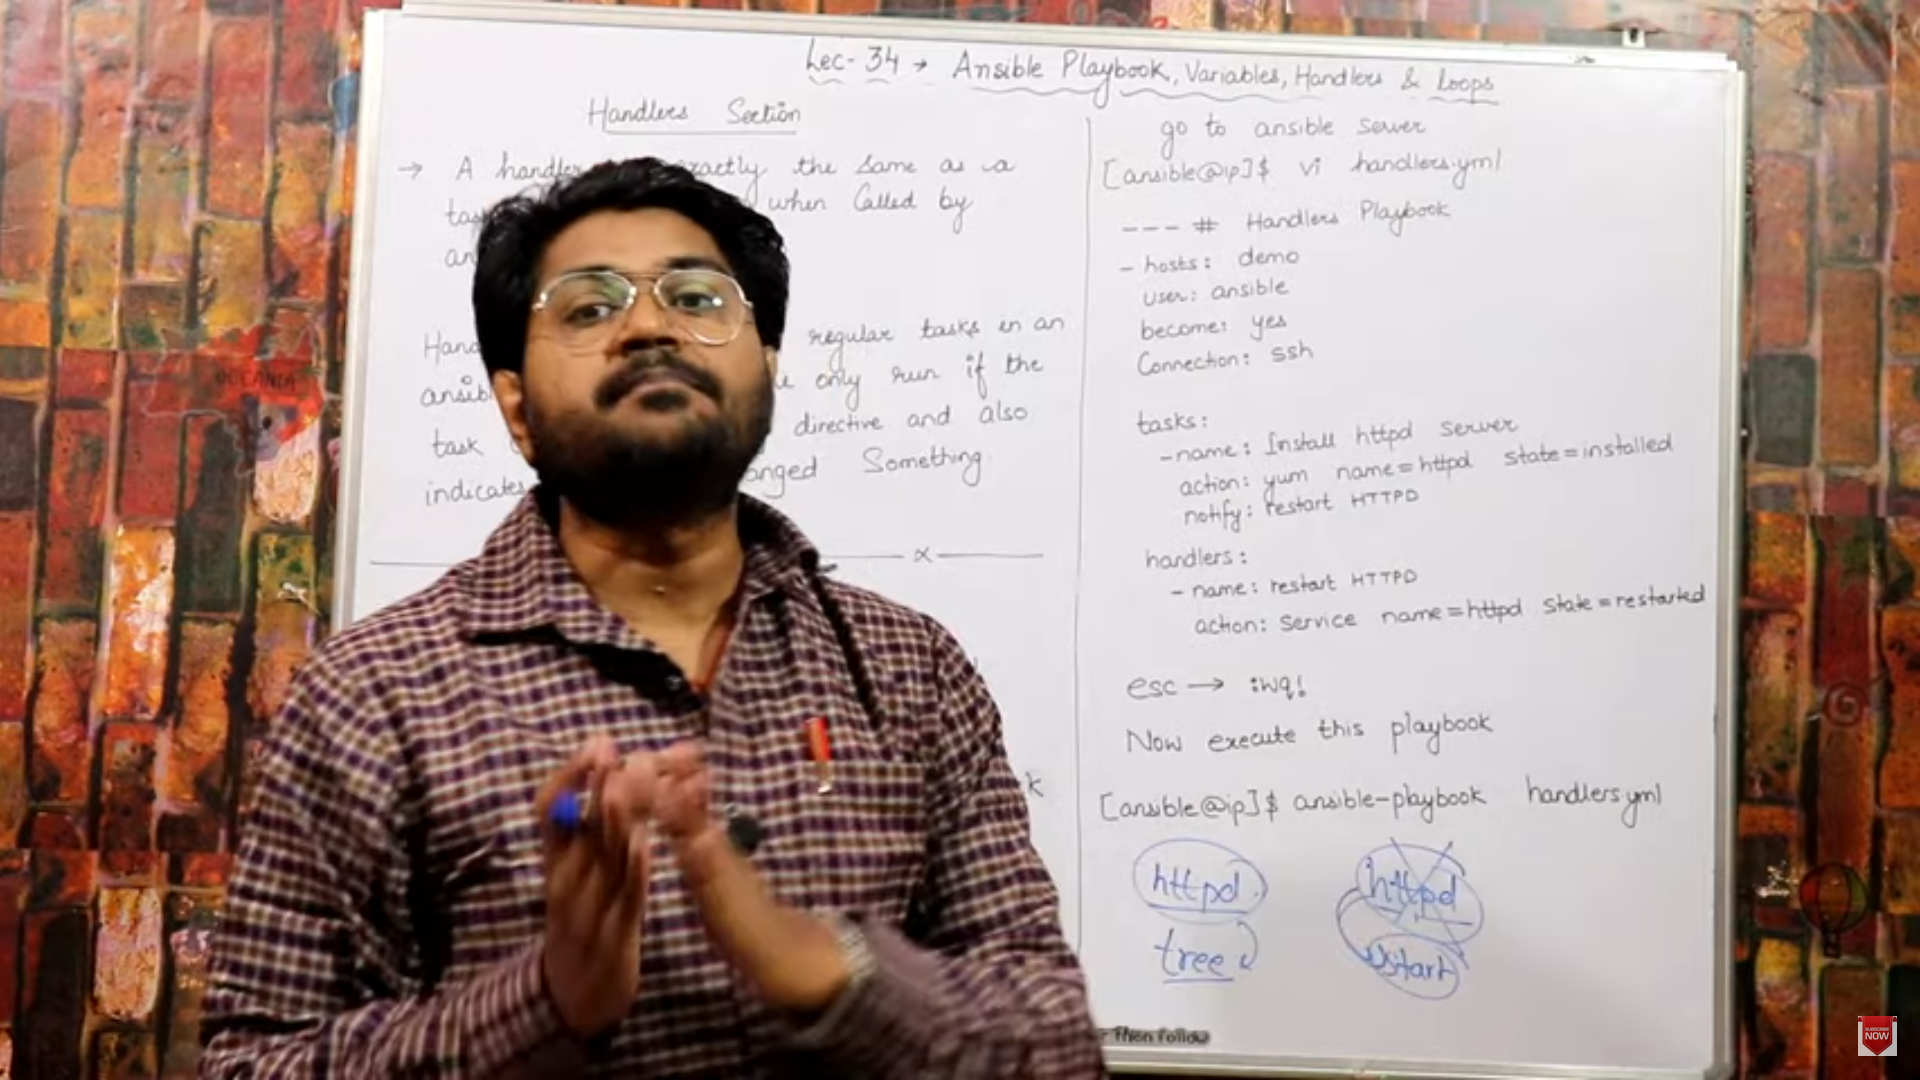 Lec-34 → Ansible Playbook, Variables, Handlers & Loops
Handlers Section
→ A handler exactly the same as a
when Called by
an
regular tasks in an
only run if the
task directive and also
indicates Something
x
k
go to ansible server
[ansible@ip]$ vi handlers.yml
--- # Handlers Playbook
- hosts: demo
user: ansible
become: yes
Connection: ssh
tasks:
- name: Install httpd server
action: yum name=httpd state=installed
notify: restart HTTPD
handlers:
- name: restart HTTPD
action: service name=httpd state=restarted
esc → :wq!
Now execute this playbook
[ansible@ip]$ ansible-playbook handlers.yml
httpd httpd
tree
Then Follow
OCEANIA
SUBSCRIBE
NOW